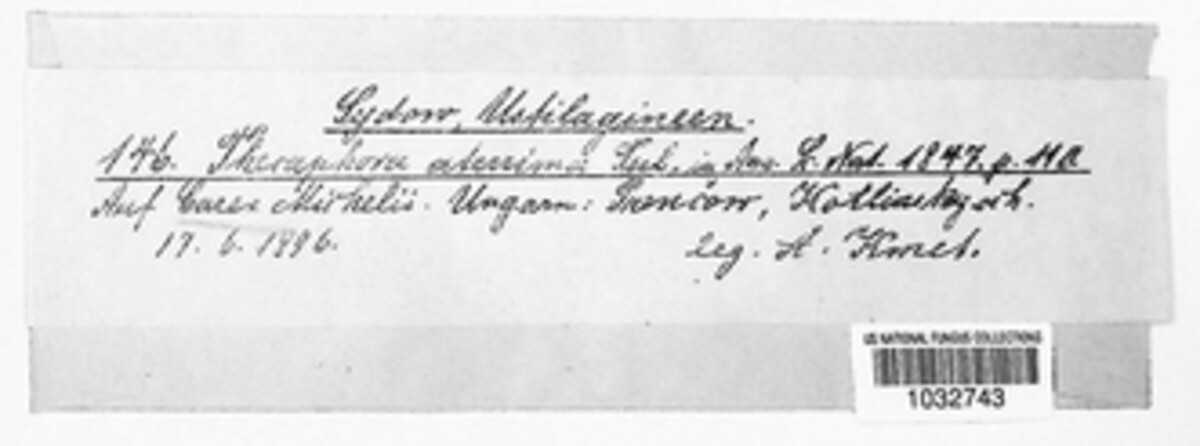 Sydow, Ustilagineen.
146. Thecaphora aterrima Tul. in Ann. S. Nat. 1847. p. 110
Auf Carex Michelii. Ungarn: Prencow,
17. 6. 1896. leg. A. Kmet.
US NATIONAL FUNGUS COLLECTIONS
1032743